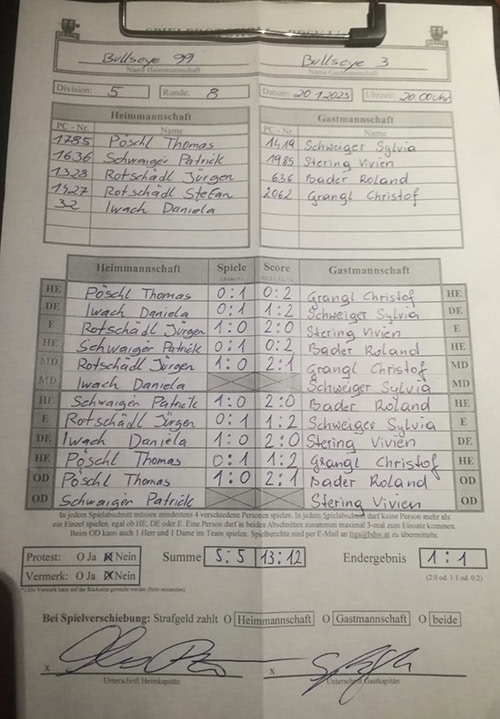 Bullseye 99 Bullseye 3
Name Heimmannschaft Name Gastmannschaft
Division: 5 Runde: 8 Datum: 20.1.2023 Uhrzeit: 20:00 Uhr
Heimmannschaft Gastmannschaft
PC - Nr. Name PC - Nr. Name
1785 Pöschl Thomas 1419 Schweiger Sylvia
1636 Schwaiger Patrick 1985 Stering Vivien
1328 Rotschädl Jürgen 636 Bader Roland
1427 Rotschädl Stefan 2062 Grangl Christof
32 Iwach Daniela
Heimmannschaft Spiele Score Gastmannschaft
HE Pöschl Thomas 0:1 0:2 Grangl Christof HE
DE Iwach Daniela 0:1 1:2 Schweiger Sylvia DE
E Rotschädl Jürgen 1:0 2:0 Stering Vivien E
HE Schwaiger Patrick 0:1 0:2 Bader Roland HE
MD Rotschädl Jürgen 1:0 2:1 Grangl Christof MD
MD Iwach Daniela Schweiger Sylvia MD
HE Schwaiger Patrick 1:0 2:0 Bader Roland HE
E Rotschädl Jürgen 0:1 1:2 Schweiger Sylvia E
DE Iwach Daniela 1:0 2:0 Stering Vivien DE
HE Pöschl Thomas 0:1 1:2 Grangl Christof HE
OD Pöschl Thomas 1:0 2:1 Bader Roland OD
OD Schwaiger Patrick Stering Vivien OD
In jedem Spielabschnitt müssen mindestens 4 verschiedene Personen spielen. In jedem Spielabschnitt darf keine Person mehr als
ein Einzel spielen, egal ob HE, DE oder E. Eine Person darf in beiden Abschnitten zusammen maximal 3-mal zum Einsatz kommen.
Beim OD kann auch 1 Herr und 1 Dame im Team spielen. Spielberichte sind per E-Mail an liga@bdsv.at zu übermitteln.
Protest: O Ja Nein Summe 5:5 13:12 Endergebnis 1:1
Vermerk: O Ja Nein (2:0 od. 1:1 od. 0:2)
*) Ein Vermerk kann auf der Rückseite gemacht werden
Bei Spielverschiebung: Strafgeld zahlt O Heimmannschaft O Gastmannschaft O beide
x x
Unterschrift Heimkapitän Unterschrift Gastkapitän